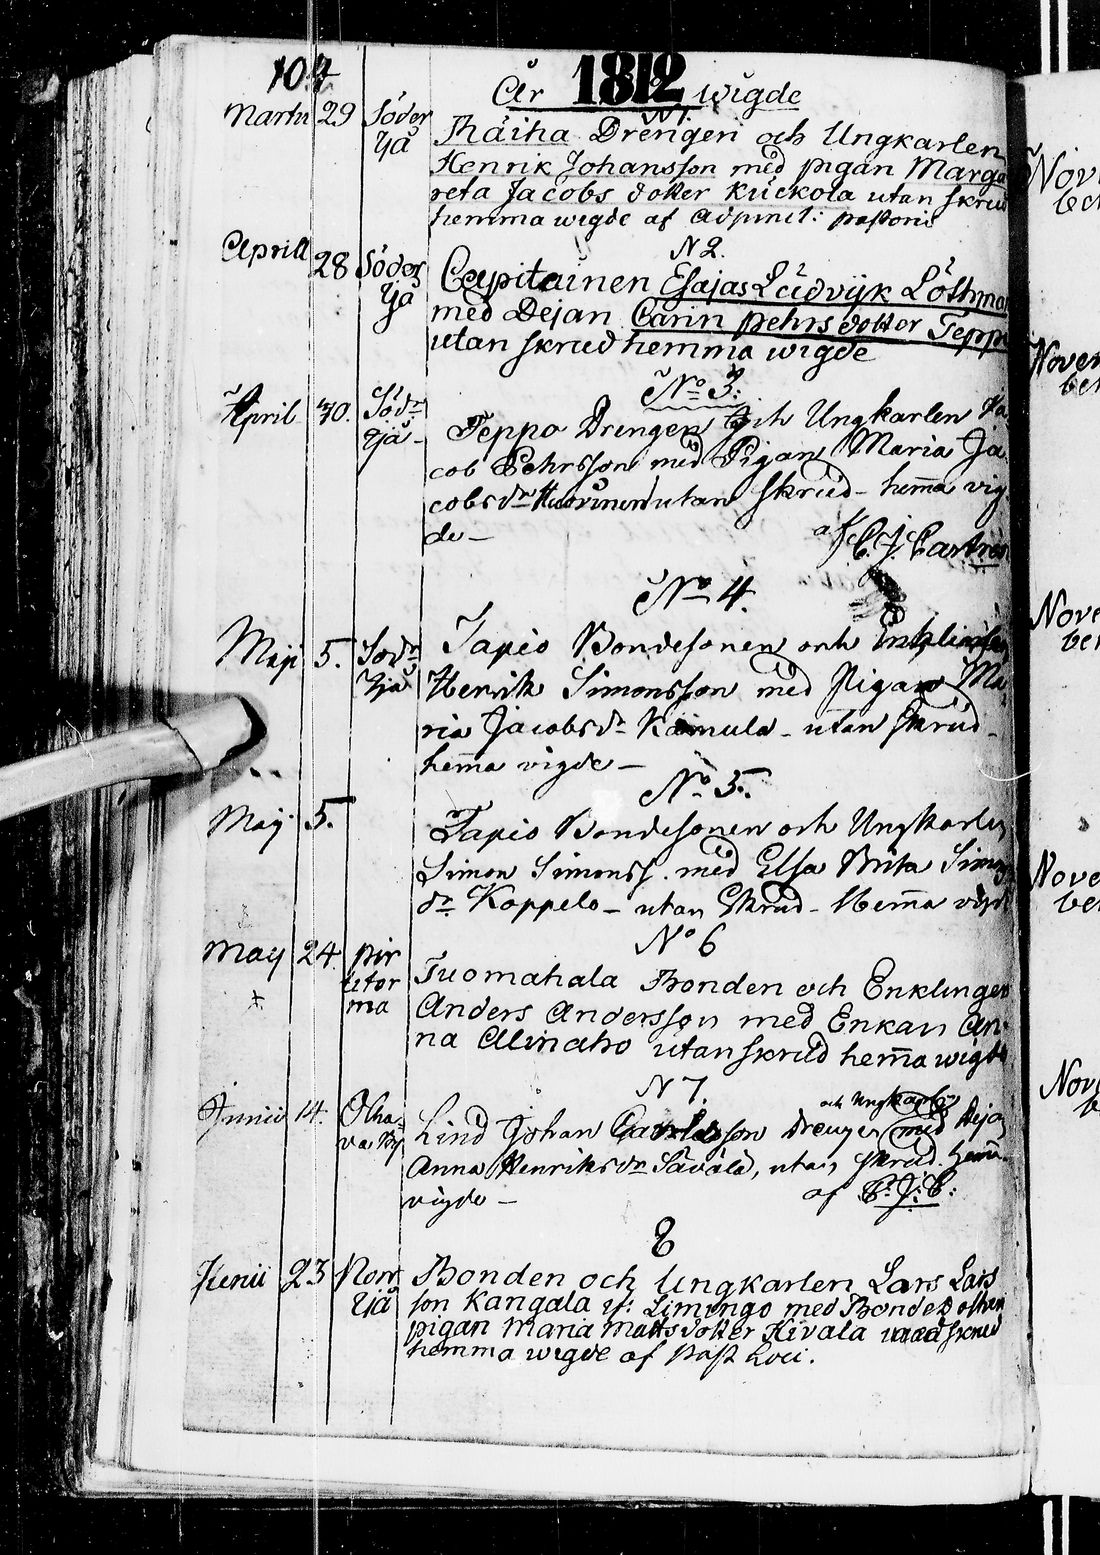 104
År 1812 wigde
N 1.
Martii 29 Söder Iijå Räihä Drengen och Ungkarlen
Henrik Johansson med pigan Marga
reta Jacobs dotter Kuckola utan skrud
hemma wigde af adjunct: pastoris
N 2.
Aprill 28 Söder Ijå Capitainen Esajas Ludvijk Löthman
med Dejan Carin pehrs dotter Teppo
utan skrud hemma wigde
No 3:
April 30. Södr Ijå Teppo Drengen och Ungkarlen Ja
cob Pehrsson med Pigan Maria Ja
cobsdr Huovinen utan skrud - hemma vig
de -
af C. J. Castrén
No 4.
Maji 5. Södr Ijå Tapio Bondesonen och Enklingen
Henrik Simonsson med Pigan Ma
ria Jacobsdr Kamula - utan skrud -
hemma vigde -
No 5.
Maj 5. Tapio Bondesonen och Ungkarlen
Simon Simonss. med Elsa Brita Simons
dr Koppelo - utan Skrud - Hemma vigde
No 6
May 24. Tuomahala Bonden och Enklingen
Anders Andersson med Enkan An-
na Alinaho utan skrud hemma wigde
N 7.
och Ungkarlen
Junii 14. Olha- va By Lind Johan Drengen med Deja
Anna Henriksdr Säväla, utan skrud. hemma
vigde -
af C: J: C:
8
Junii 23 Norr Ijå Bonden och Ungkarlen Lars Lars
son Kangala if: Limingo med Bonde dotter
pigan Maria Matts dotter Kivala skrud
hemma wigde af Past Loci.
Nov
Novem
ber
Nove
ber
Nove
ber
Nov